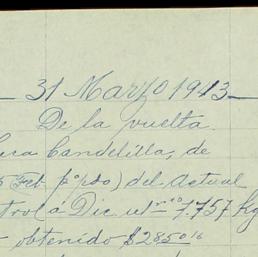 31 Marzo 1913
De la vuelta.
Candelilla, de
Feb. ppdo) del actual
á Dic. ult 7.757 Kg
obtenido $285